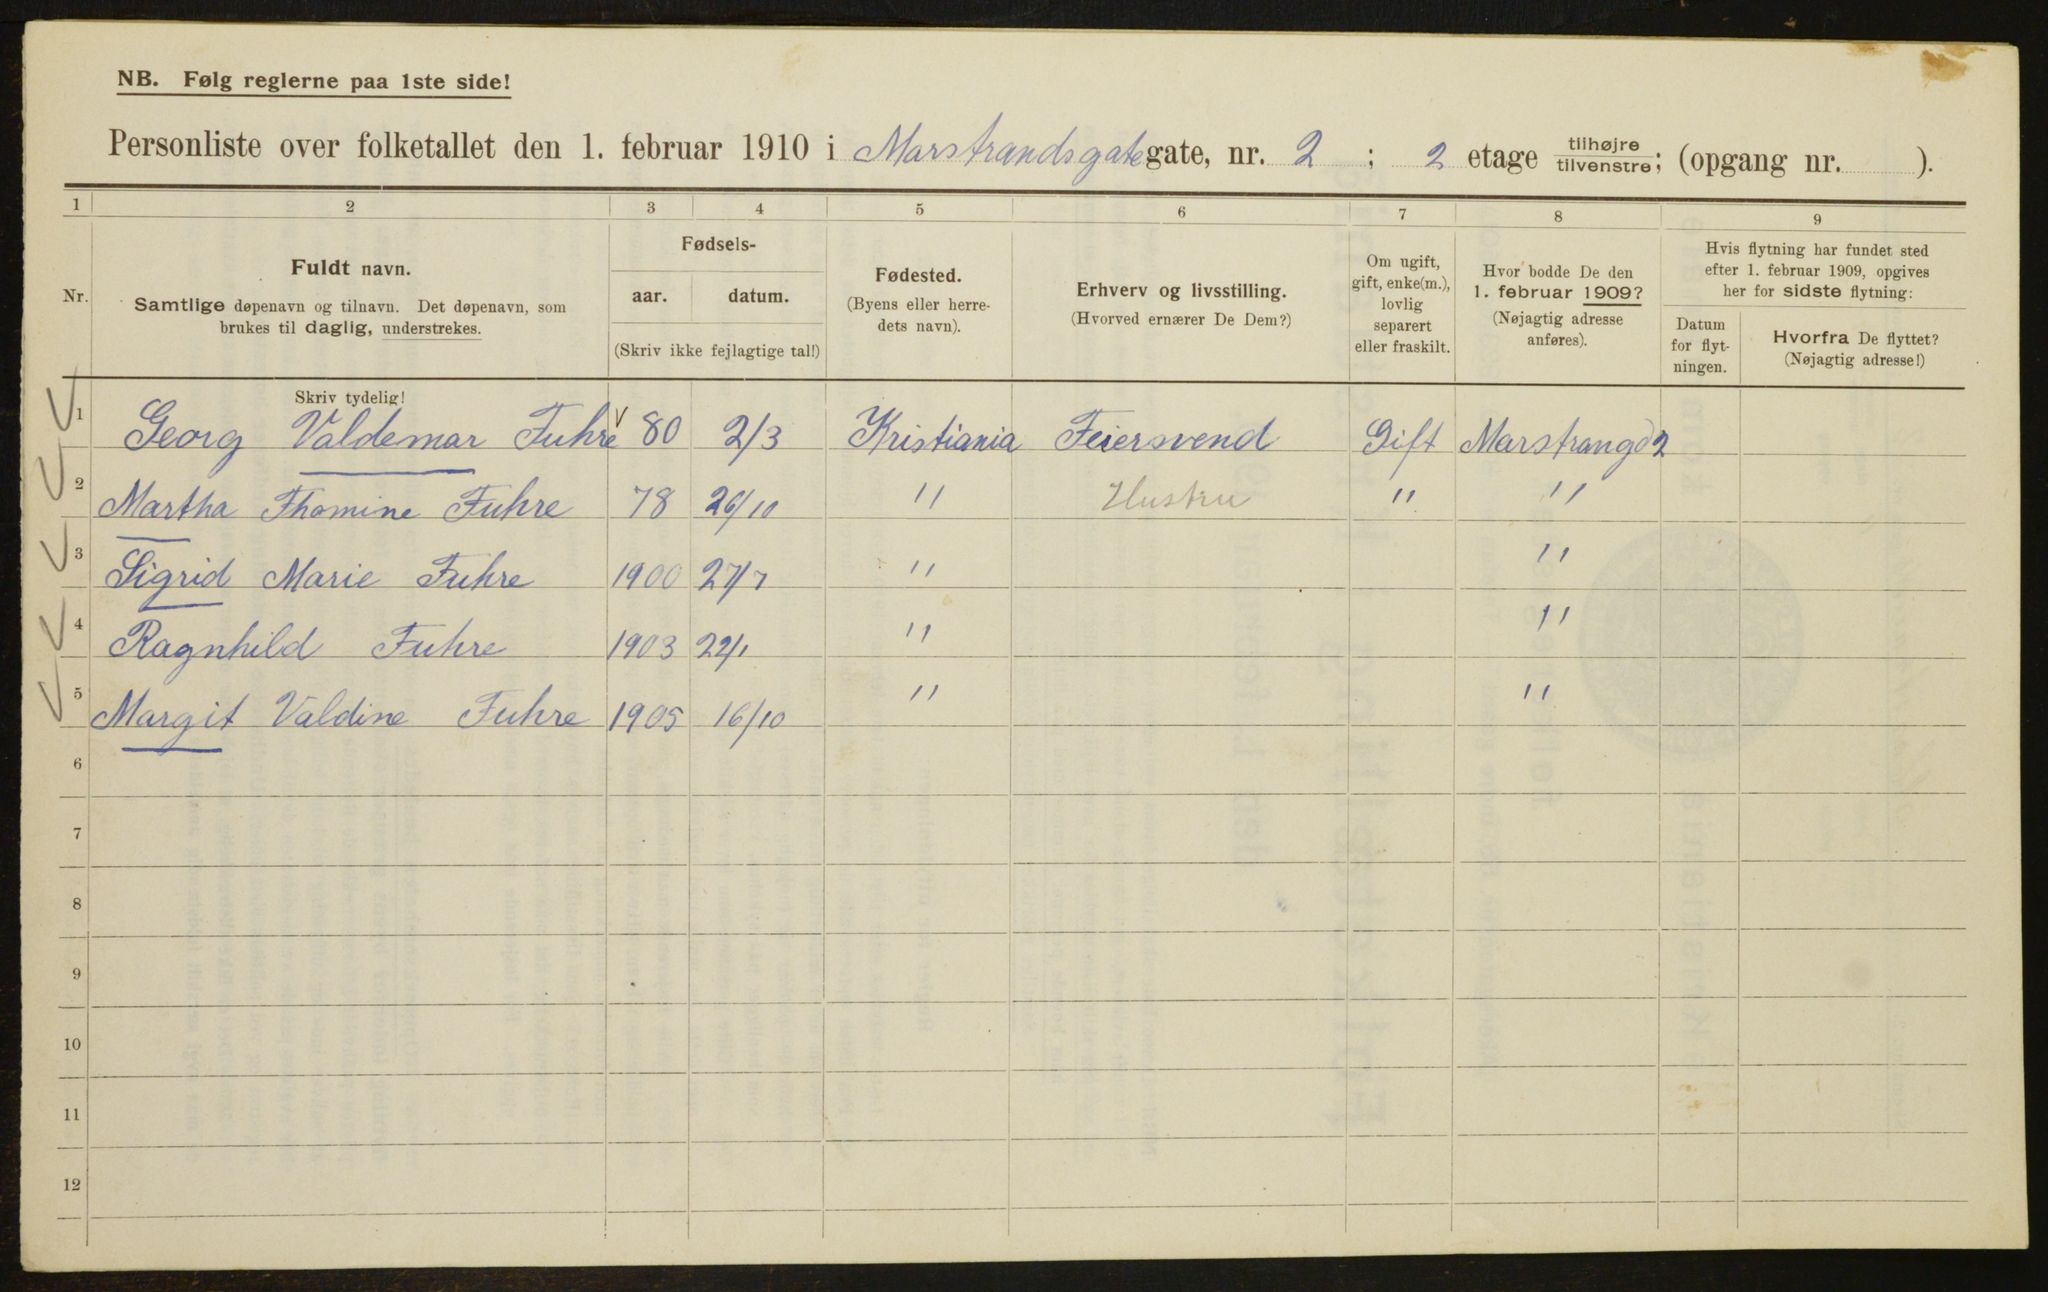 NB. Følg reglerne paa 1ste side!
Personliste over folketallet den 1. februar 1910 i Marstrandsgate gate, nr. 2 ; 2 etage tilhøjre/tilvenstre; (opgang nr. ).
1 2 3 4 5 6 7 8 9
Nr.
Fuldt navn.
Samtlige døpenavn og tilnavn. Det døpenavn, som
brukes til daglig, understrekes.
Fødsels-
aar. datum.
(Skriv ikke fejlagtige tal!)
Fødested.
(Byens eller herre-
dets navn).
Erhverv og livsstilling.
(Hvorved ernærer De Dem?)
Om ugift,
gift, enke(m.),
lovlig
separert
eller fraskilt.
Hvor bodde De den
1. februar 1909?
(Nøjagtig adresse
anføres).
Hvis flytning har fundet sted
efter 1. februar 1909, opgives
her for sidste flytning:
Datum
for flyt-
ningen.
Hvorfra De flyttet?
(Nøjagtig adresse!)
Skriv tydelig!
1 Georg Valdemar Fuhre 80 2/3 Kristiania Feiersvend Gift Marstrangd 2
2 Martha Thomine Fuhre 78 26/10 " Hustru " "
3 Sigrid Marie Fuhre 1900 27/7 " "
4 Ragnhild Fuhre 1903 22/1 " "
5 Margit Valdine Fuhre 1905 16/10 " "
6
7
8
9
10
11
12